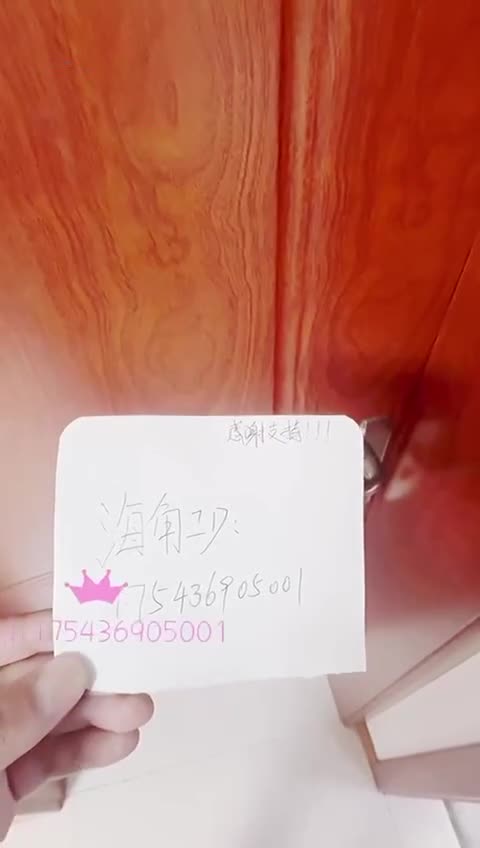 感谢支持!!!
海角ID:
175436905001
175436905001